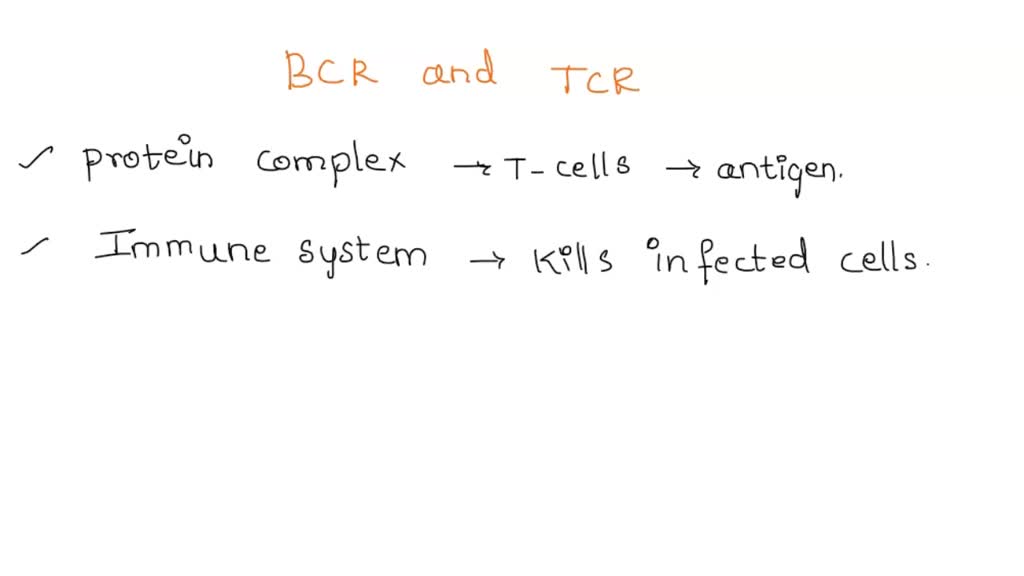 BCR and TCR
✓ protein complex → T-cells → antigen.
✓ Immune system → Kills infected cells.